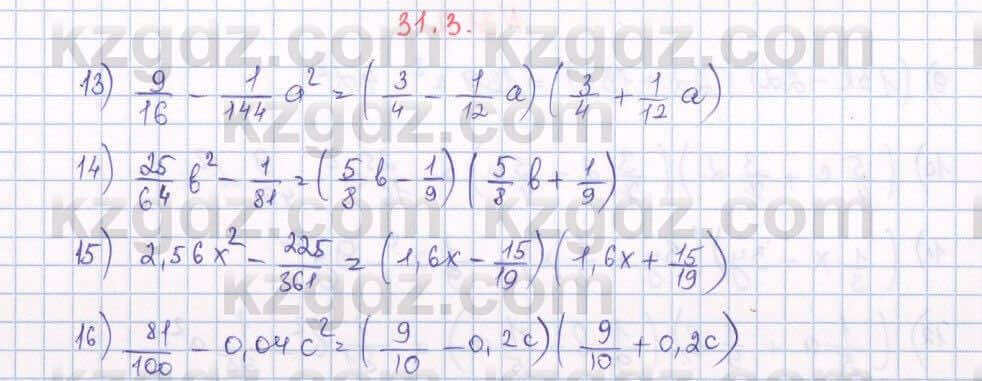 31.3.
13) 9/16 - 1/144 a² = (3/4 - 1/12 a) (3/4 + 1/12 a)
14) 25/64 b² - 1/81 = (5/8 b - 1/9) (5/8 b + 1/9)
15) 2,56x² - 225/361 = (1,6x - 15/19) (1,6x + 15/19)
16) 81/100 - 0,04c² = (9/10 - 0,2c) (9/10 + 0,2c)
kzgdz.com kzgdz.com
kzgdz.com
kzgdz.com kzgdz.com
kzgdz.com